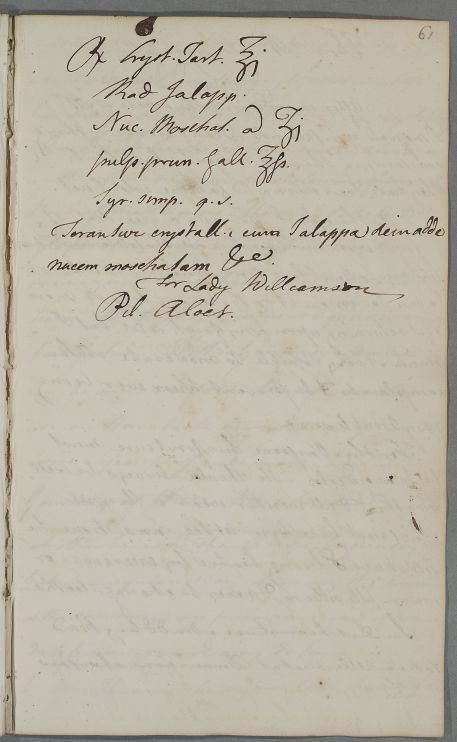 61
℞ Cryst. Tart. ℥j
Rad Jalapp.
Nuc. Moschat. a ʒj
pulp. prun. Gall. ℥ſs.
Syr. simp. q. s.
Terantur crystall. cum Jalappa dein adde
nucem moschatam &c.
For Lady Williamson
Pil. Aloet.